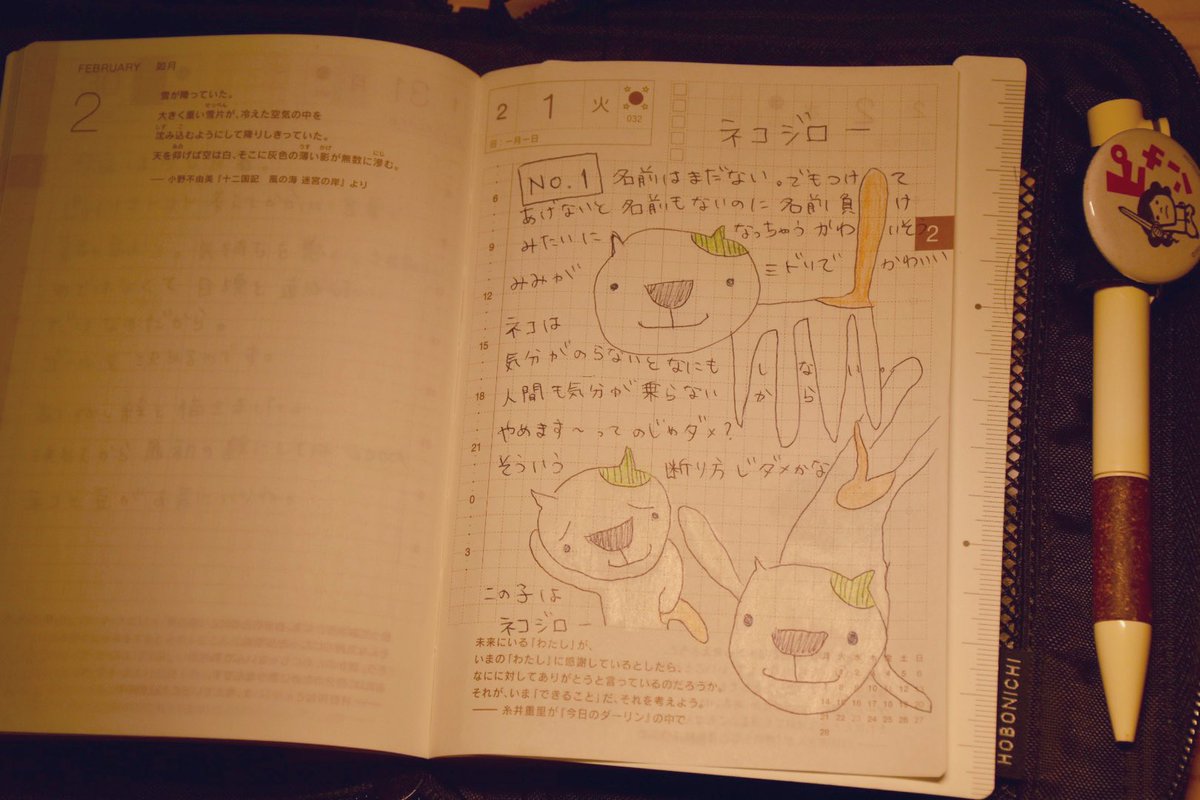 FEBRUARY 如月
2
雪が降っていた。
大きく重い雪片が、冷えた空気の中を
沈み込むようにして降りしきっていた。
天を仰げば空は白、そこに灰色の薄い影が無数に滲む。
── 小野不由美『十二国記 風の海 迷宮の岸』より
2 1 火
032
旧:一月一日
ネコジロー
NO.1 名前はまだない。でもつけて
あげないと名前もないのに名前負け
みたいになっちゃうかわいそう
みみがミドリでかわいい
ネコは
気分がのらないとなにもしない。
人間も気分が乗らないから
やめます〜ってのじゃダメ?
そういう断り方じダメかな
この子は
ネコジロー
未来にいる「わたし」が、
いまの「わたし」に感謝しているとしたら、
なにに対してありがとうと言っているのだろうか。
それが、いま「できること」だ、それを考えよう。
── 糸井重里が『今日のダーリン』の中で
6
9
12
15
18
21
0
3
2
月 火 水 木 金 土 日
HOBONICHI